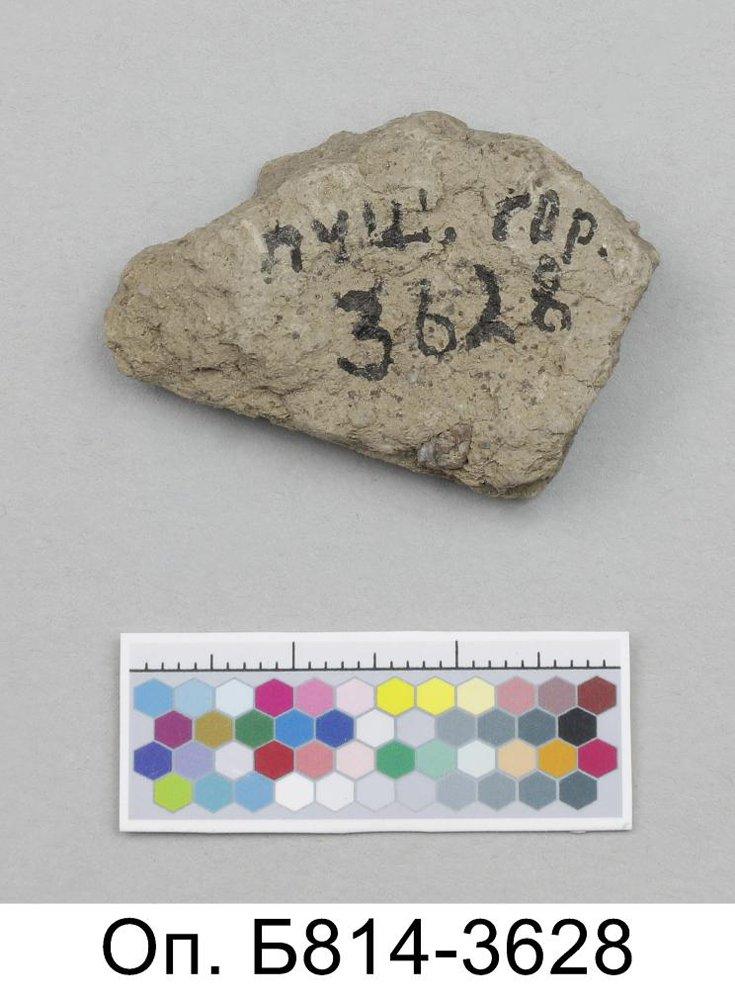 пуш. гор.
3628
Оп. Б814-3628